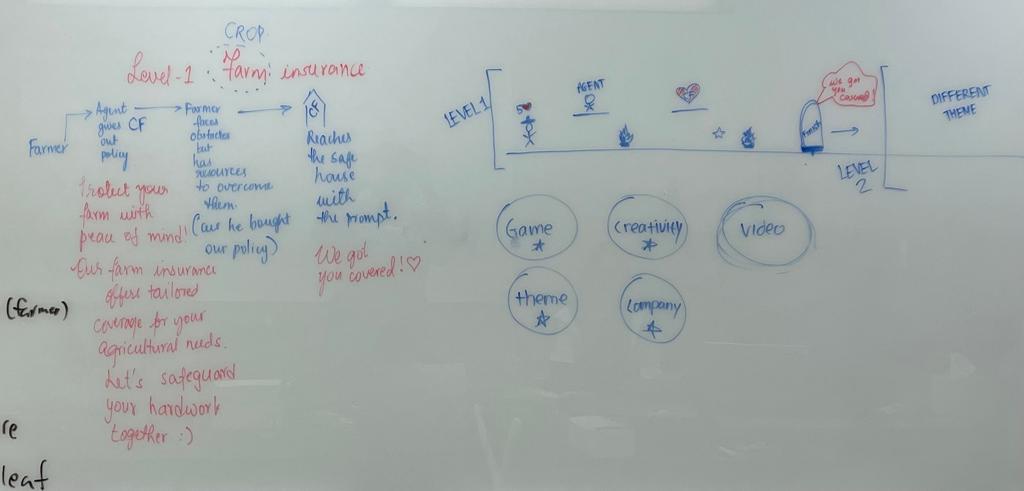 CROP
Level-1 Farm insurance
Farmer
Agent
gives
out
policy
CF
Farmer
faces
obstacles
but
has
resources
to overcome
them.
(cuz he bought
our policy)
CF
Reaches
the safe
house
with
the prompt.
We got
you covered!♡
Protect your
farm with
peace of mind!
Our farm insurance
offers tailored
coverage for your
agricultural needs.
Let's safeguard
your hardwork
together :)
(farmer)
re
leaf
LEVEL 1
5
AGENT
CF
We got
you
covered!
Finish
LEVEL
2
DIFFERENT
THEME
Game
Creativity
Video
theme
Company